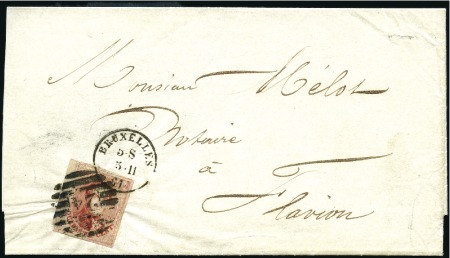 Monsieur Mélot
Notaire
à
Flavion
BRUXELLES
5-8
5-11